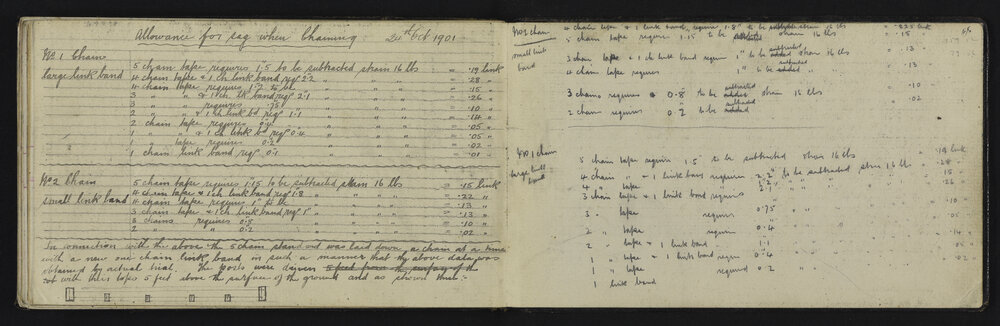 Allowance for sag when Chaining 24th Oct 1901
No 1 Chain
large link band
5 chain tape requires 1.5 to be subtracted strain 16 lbs = .19 link
4 chain tape & 1 ch link band reqr 2.2 " " " " = .28 "
4 chain tape requires 1.2 to be " " " = .15 "
3 " " & 1 ch. lk band reqr 2.1 " " " " = .26 "
3 " " requires .75 " " " = .10 "
2 " " & 1 ch link bd reqr 1.1 " " " = .14 "
2 chain tape requires 0.4 " " " = .05 "
1 " " & 1 ch link bd reqr 0.4 " " " = .05 "
1 " tape requires 0.2 " " " = .02 "
1 chain link band reqr 0.1 " " " = .01 "
No 2 Chain
small link band
5 chain tape requires 1.15 to be subtracted strain 16 lbs = .15 link
4 chain tape & 1 ch link band reqr 1.8 " " " = .22 "
4 chain tape requires 1" to be " " " = .13 "
3 chain tape & 1 ch link band reqr 1" " " " = .13 "
3 chains requires 0.8 " " " = .10 "
2 " " 0.2 " " " = .02 "
In connection with the above the 5 chain standard was laid down a chain at a time
with a new one chain link band in such a manner that the above data was
obtained by actual trial. The posts were driven
with their tops 5 feet above the surface of the ground and as shown thus:-
No 2 chain
small link band
4 chain tape & 1 link band requires 1.8" to be subtracted strain 16 lbs = .225 link
5 chain tape requires 1.2 to be strain 16 lbs = .15 "
3 chain tape & 1 ch link band requires 1" to be subtracted strain 16 lbs = .13 "
4 chain tape requires 1" to be subtracted " = .13
3 chains requires 0.8 to be subtracted strain 16 lbs = .10
2 chain requires 0.2 to be subtracted " = .02
No 1 chain
large link band
5 chain tape requires 1.5" to be subtracted strain 16 lbs = .19 link
4 chain " & 1 link band requires 2.2" to be subtracted strain 16 lbs = .28 "
4 " tape 1.2" " = .15
3 chain tape & 1 link band requires 2.1 " = .26
3 " tape requires 0.75 " = .10
2 " tape requires 0.4 "
2 " tape & 1 link band 1.1 " .14
1 " tape & 1 link band requires 0.4 " .05
1 " tape required 0.2 " .02
1 link band